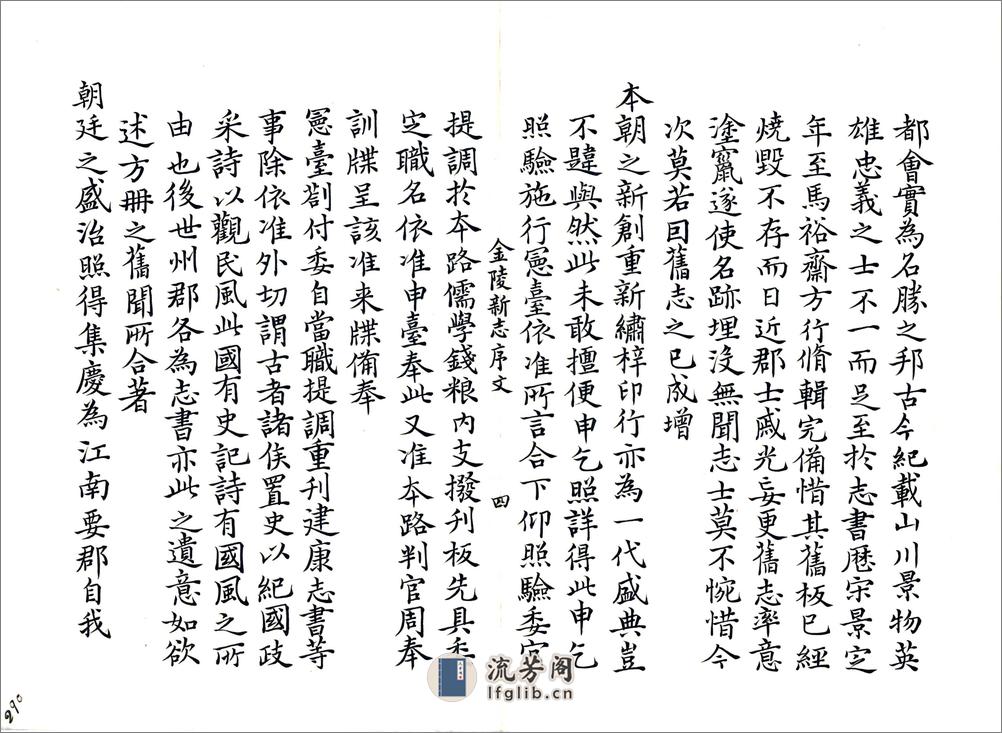 都會實為名勝之邦古今紀載山川景物英
雄忠義之士不一而足至於志書歷宋景定
年至馬裕齋方行脩輯完備惜其舊板已經
燒毀不存而日近郡士戚光妄更舊志率意
塗竄遂使名跡埋沒無聞志士莫不惋惜今
次莫若因舊志之已成增
本朝之新創重新繡梓印行亦為一代盛典豈
不韙與然此未敢擅便申乞照詳得此申乞
照驗施行憲臺依准所言合下仰照驗委官
金陵新志序文
四
提調於本路儒學錢粮內支撥刊板先具委
定職名依准申臺奉此又准本路判官周奉
訓牒呈該准来牒備奉
憲臺劄付委自當職提調重刊建康志書等
事除依准外切謂古者諸侯置史以紀國政
采詩以觀民風此國有史記詩有國風之所
由也後世州郡各為志書亦此之遺意如欲
述方冊之舊聞所合著
朝廷之盛治照得集慶為江南要郡自我
流芳阁
lfglib.cn
290